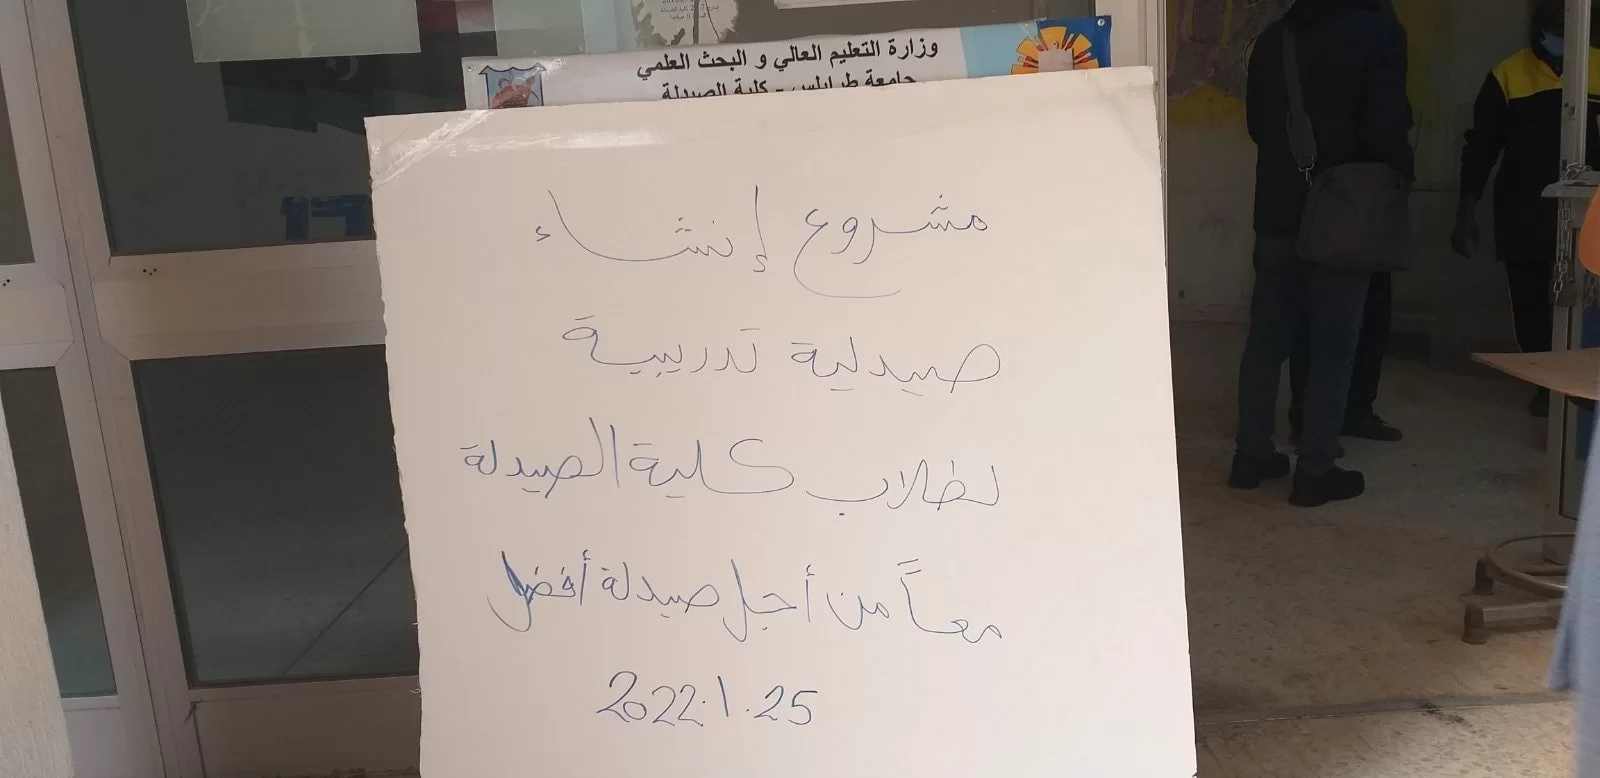 وزارة التعليم العالي و البحث العلمي
جامعة طرابلس - كلية الصيدلة
مشروع إنشاء
صيدلية تدريبية
لطلاب كلية الصيدلة
معاً من أجل صيدلة أفضل
2022.1.25